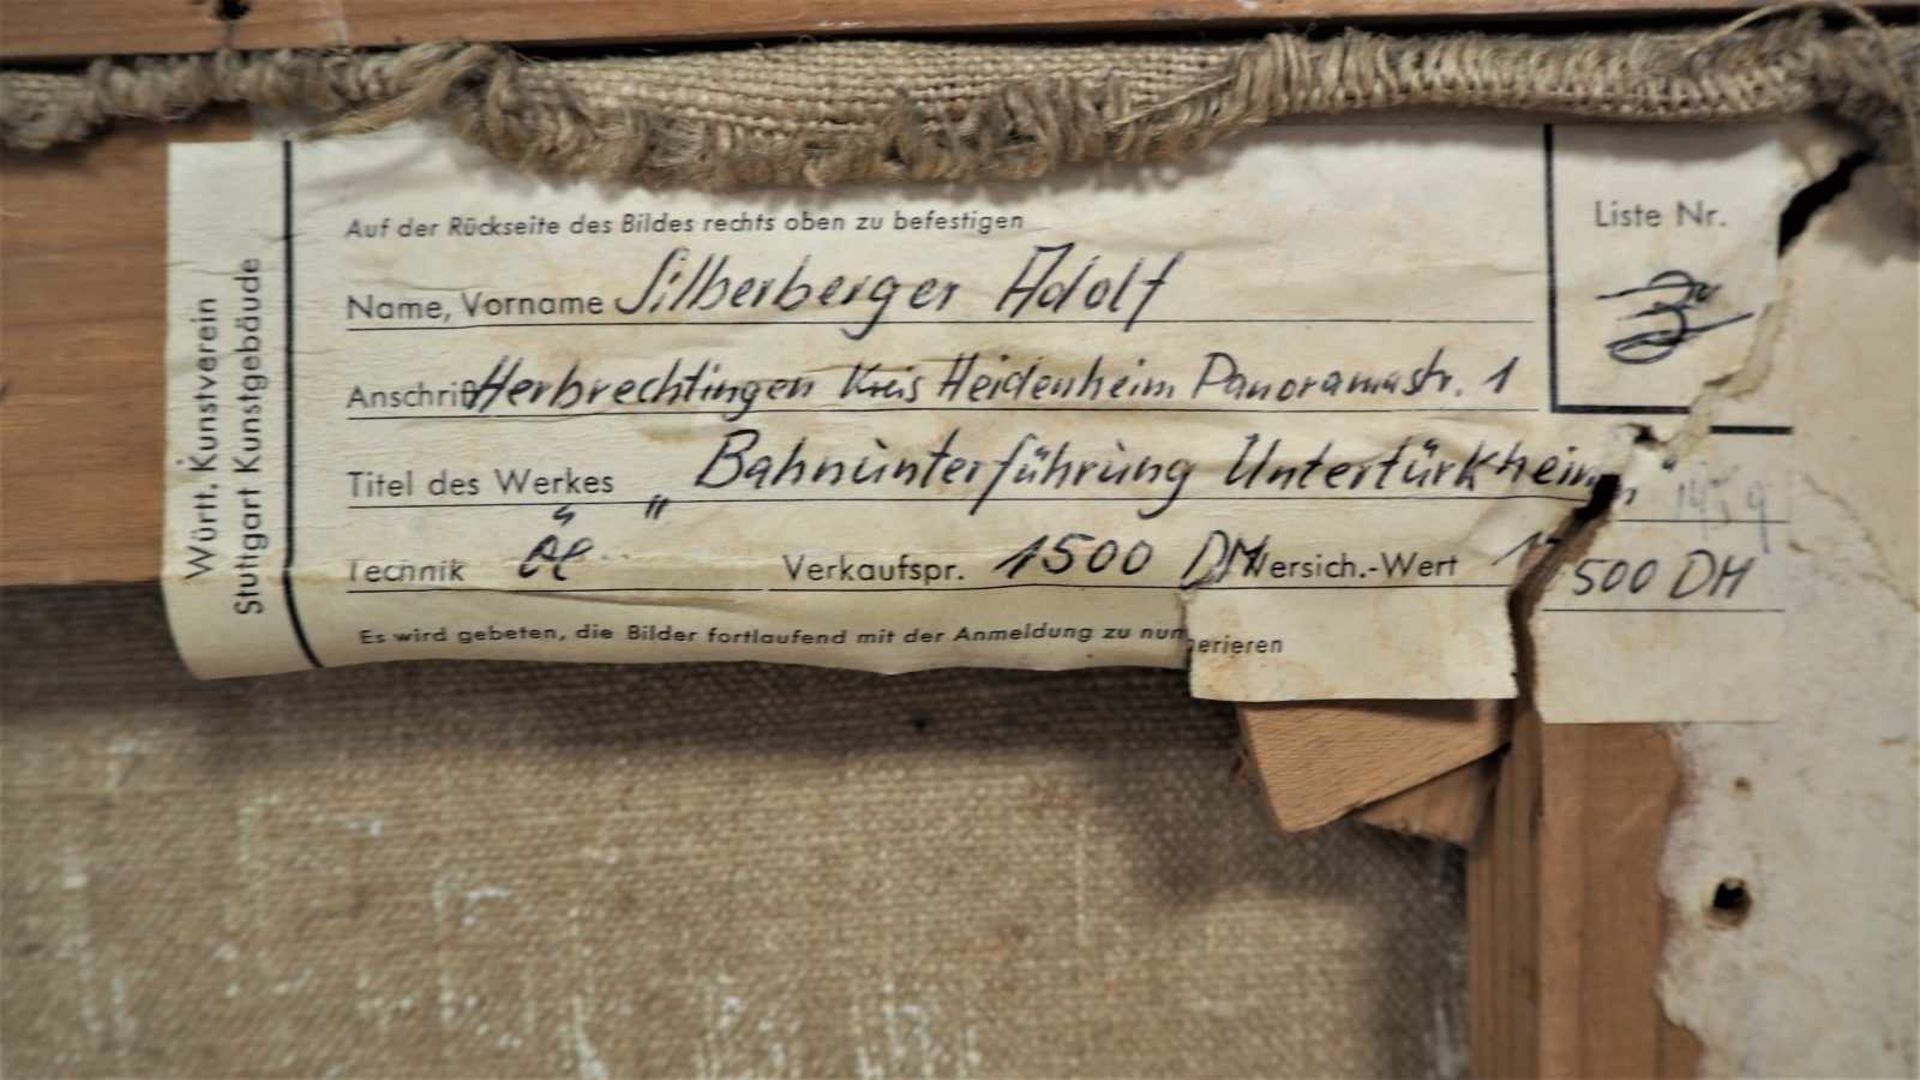 Württ. Kunstverein
Stuttgart Kunstgebäude
Auf der Rückseite des Bildes rechts oben zu befestigen
Liste Nr.
Name, Vorname Silberberger Adolf
Anschrift Herbrechtingen Kreis Heidenheim Panoramastr. 1
Titel des Werkes „Bahnunterführung Untertürkheim"
Technik Öl Verkaufspr. 1500 DM Versich.-Wert 1500 DM
Es wird gebeten, die Bilder fortlaufend mit der Anmeldung zu numerieren